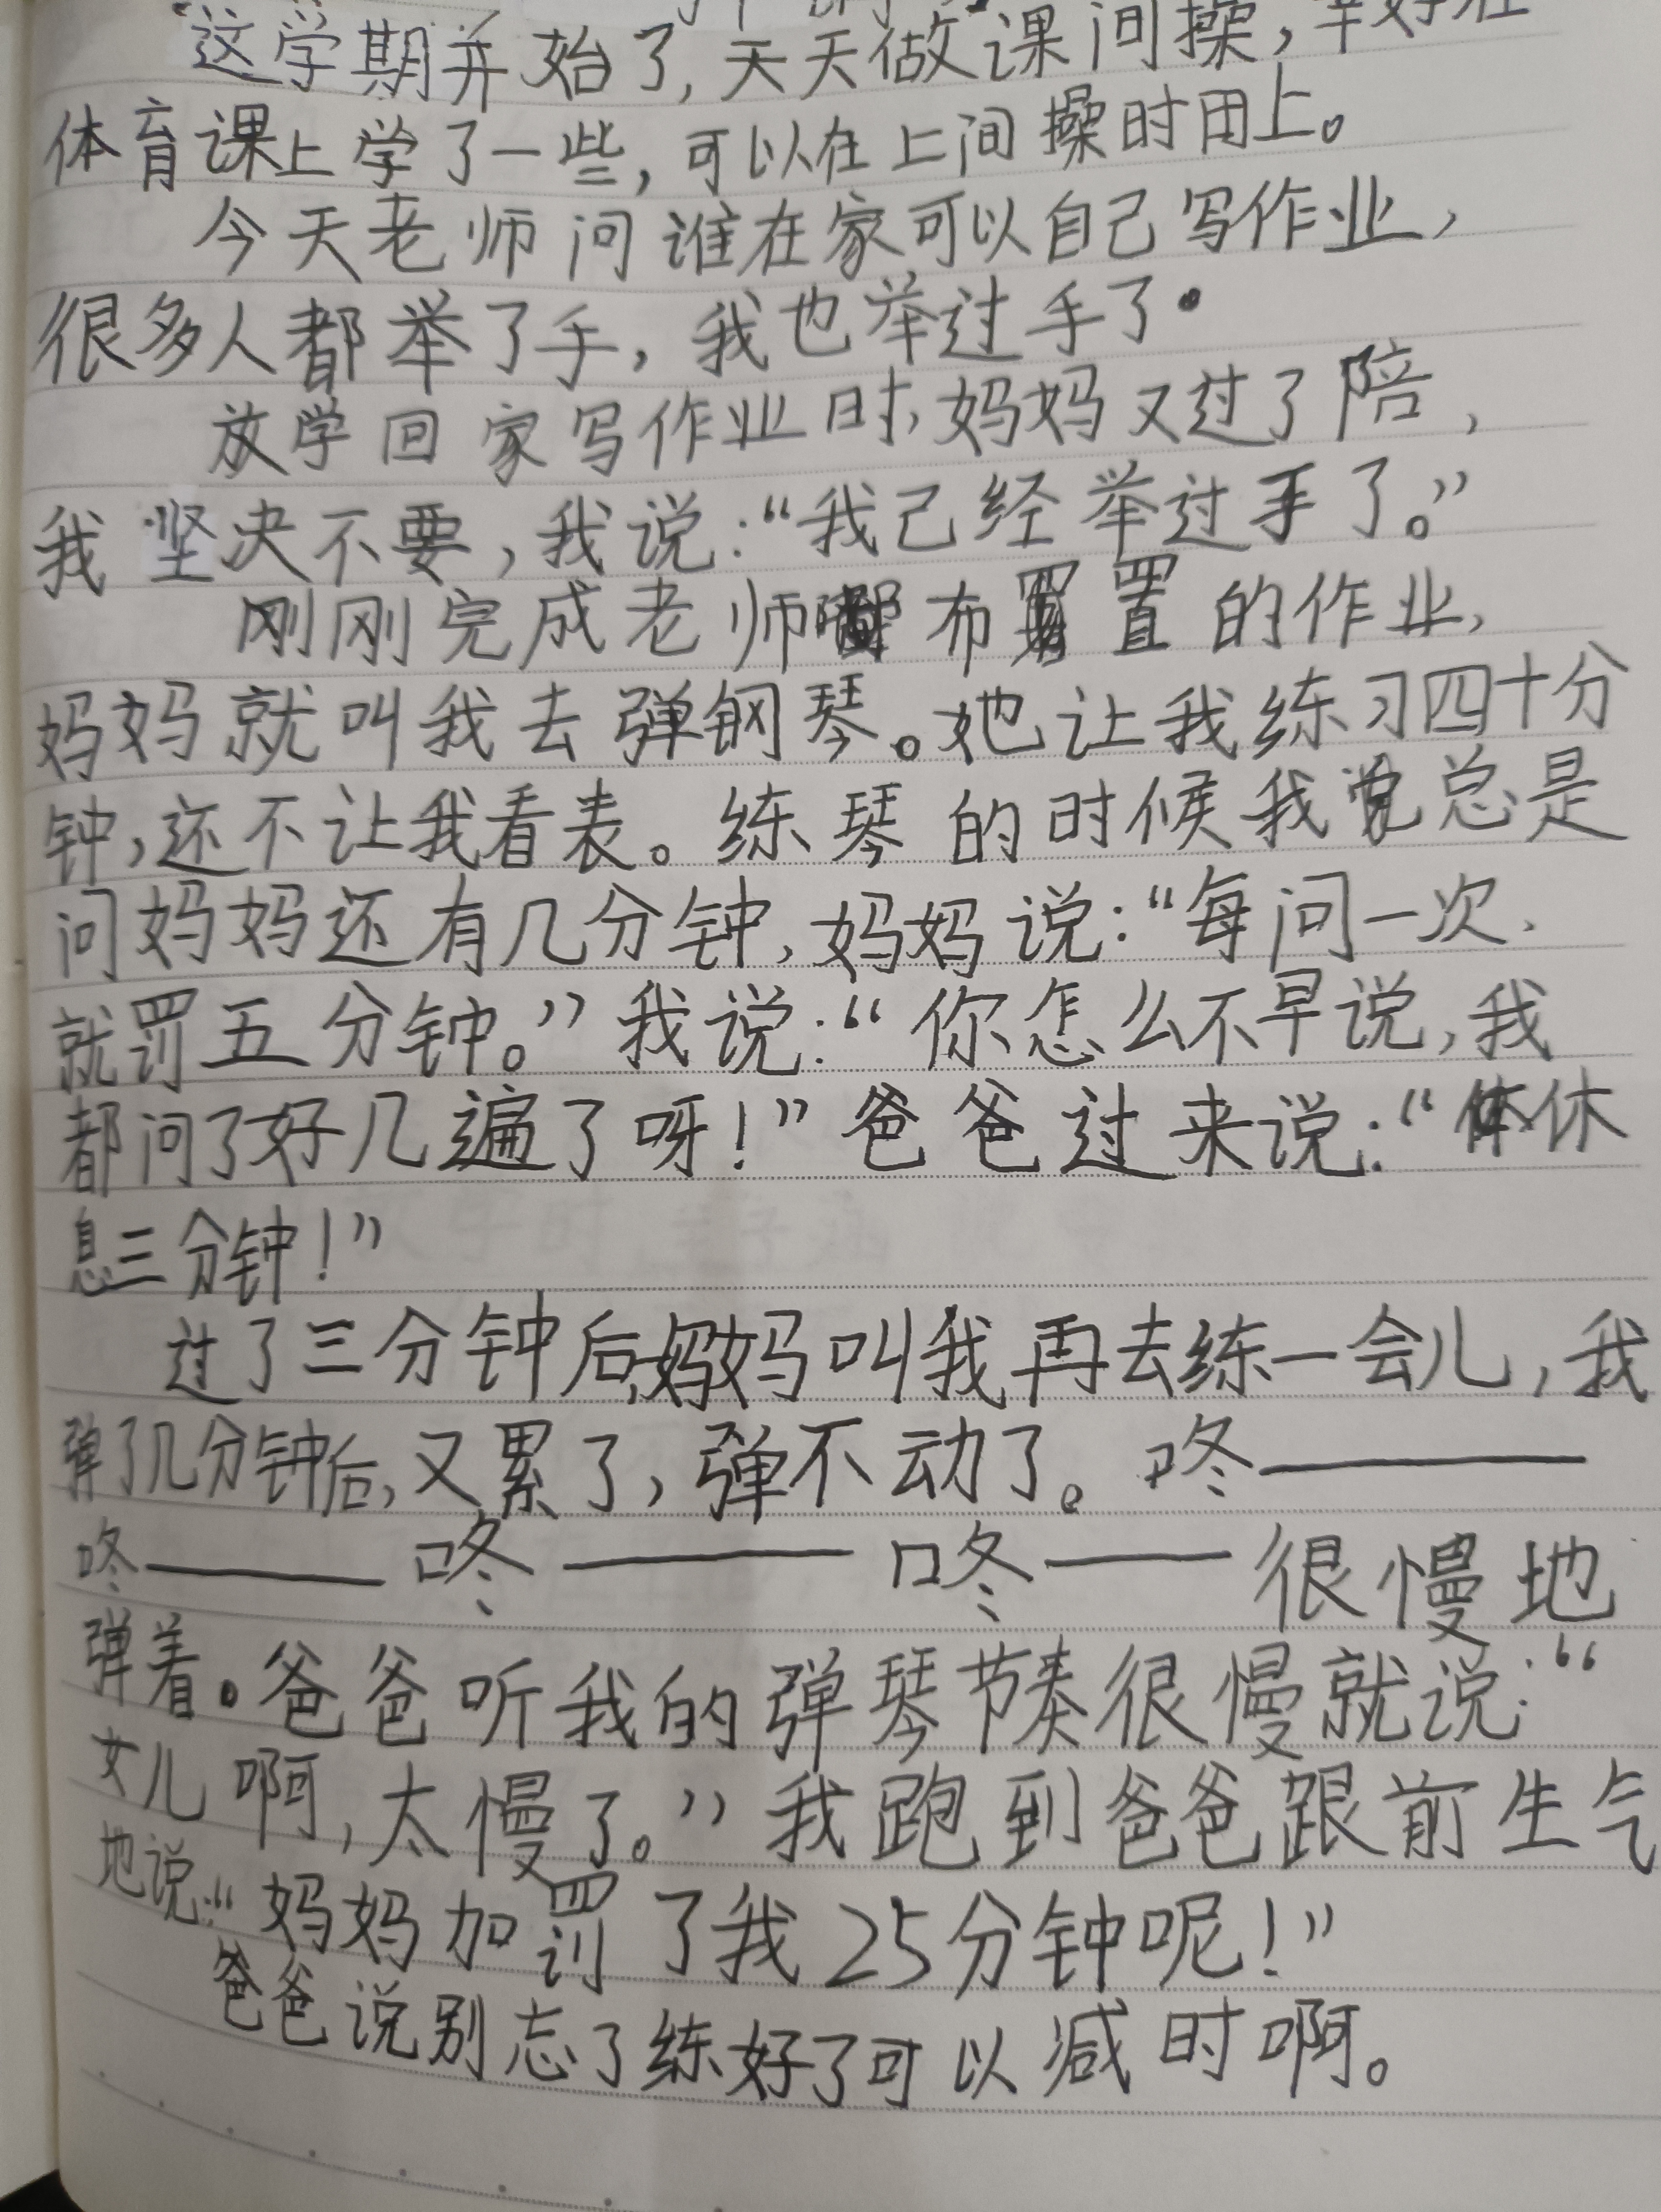 这学期并始了,天天做课间操,幸好在
体育课上学了一些,可以在上间操时用上。
今天老师问谁在家可以自己写作业,
很多人都举了手,我也举过手了.
放学回家写作业时,妈妈又过了陪,
我坚决不要,我说:“我己经举过手了。”
刚刚完成老师布置的作业,
妈妈就叫我去弹钢琴。她让我练习四十分
钟,还不让我看表。练琴的时候我总是
问妈妈还有几分钟,妈妈说:“每问一次、
就罚五分钟。”我说:“你怎么不早说,我
都问了好几遍了呀!”爸爸过来说:“休
息三分钟!”
过了三分钟后,妈妈叫我再去练一会儿,我
弹了几分钟后,又累了,弹不动了。咚———
咚——咚———咚——很慢地
弹着。爸爸听我的弹琴节奏很慢就说:“
女儿啊,太慢了。”我跑到爸爸跟前生气
地说:“妈妈加罚了我25分钟呢!”
爸爸说别忘了练好了可以减时啊。